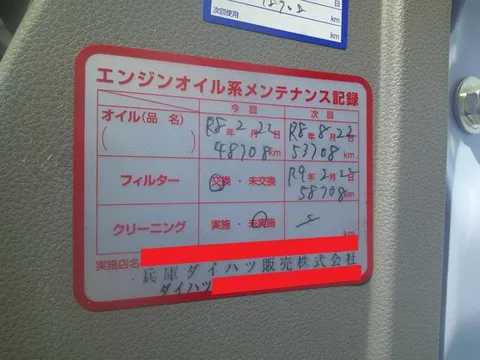 日
km
次回使用
km
エンジンオイル系メンテナンス記録
今回 次回
オイル(品名) R8年2月22日 R8年8月22日
( ) 48708km 53708km
フィルター 交換・未交換 R9年2月22日
58708km
クリーニング 実施・未実施
km
実施店名
兵庫ダイハツ販売株式会社
ダイハツ